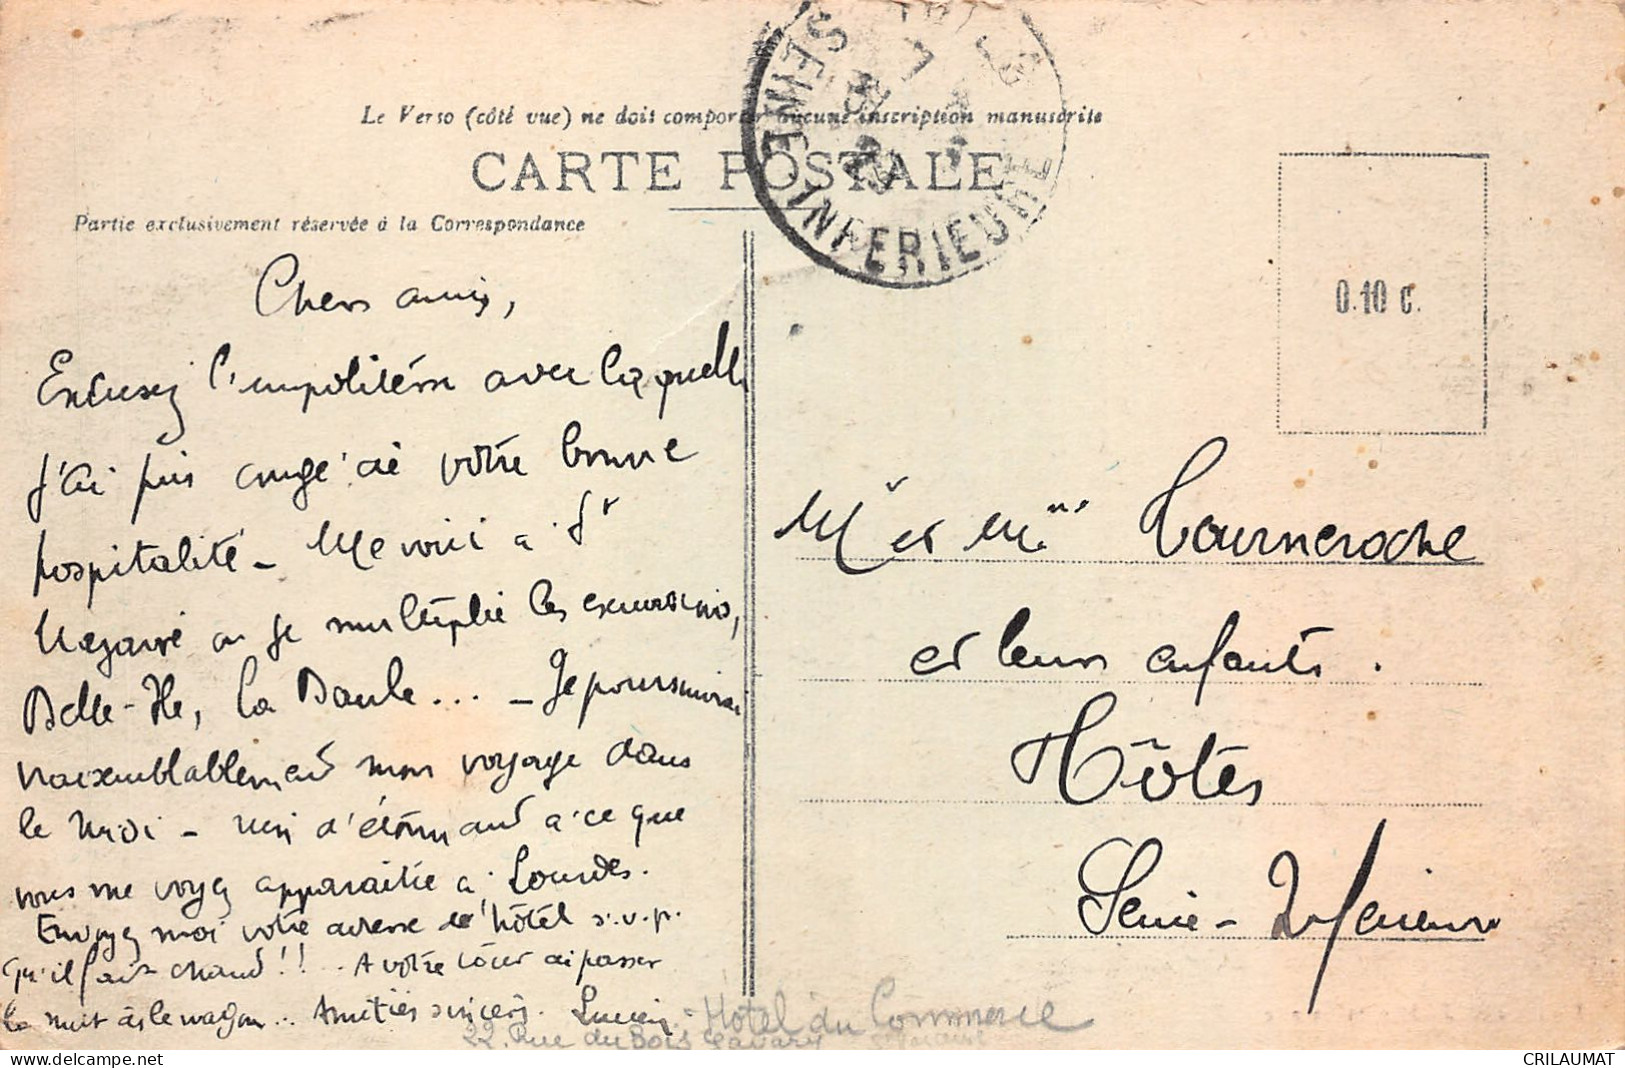 Le Verso (côté vue) ne doit comporter aucune inscription manuscrite
CARTE POSTALE
Partie exclusivement réservée à la Correspondance
SEINE-INFERIEURE
0.10 C.
Chers amis,
Excusez l'impolitesse avec laquelle
j'ai pris congé de votre bonne
hospitalité - Me voici à St
Nazaire où je multiplie les excursions,
Belle-Ile, la Baule... - Je poursuivrai
vraisemblablement mon voyage dans
le Midi - d'étonnant à ce que
vous me voyez apparaître à Lourdes.
Envoyez moi votre adresse de l'hôtel s.v.p.
Qu'il fait chaud!! - A votre tour de passer
la nuit ds le wagon.. Amitiés sincères. Lucien
- Hotel du Commerce
22, Rue du Bois Savary St Nazaire
Mr et Mme Tourneroche
et leurs enfants.
Hôtes
Seine-Inférieure
CRILAUMAT